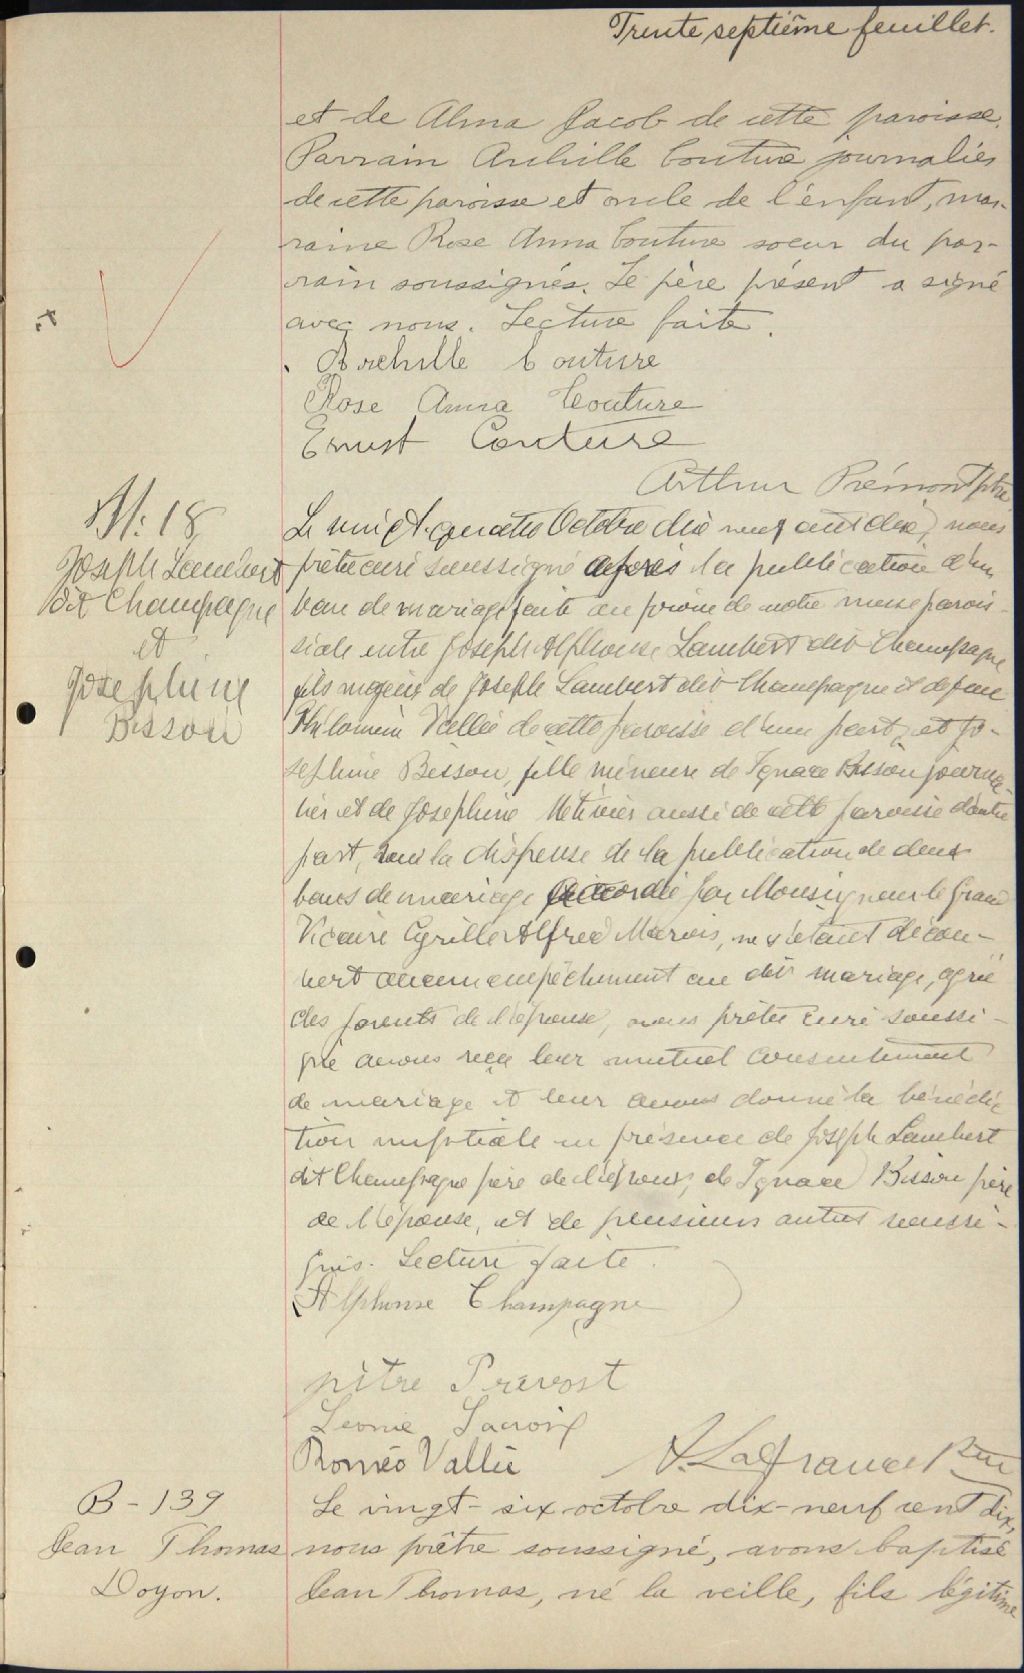 Trente septième feuillet.
et de Alma Jacob de cette paroisse.
Parrain Achille Couture journalier
de cette paroisse et oncle de l'enfant, mar-
raine Rose Anna Couture soeur du par-
rain soussignés. Le père présent a signé
avec nous. Lecture faite.
Archille Couture
Rose Anna Couture
Ernest Couture
Arthur Prémont ptre
M. 18
Joseph Lambert
dit Champagne
et
Josephine
Bisson
Le vingt-quatre Octobre dix neuf cent dix, nous
prêtre curé soussigné après la publication d'un
ban de mariage faite au prône de notre messe parois-
siale entre Joseph Alphonse Lambert dit Champagne
fils majeur de Joseph Lambert dit Champagne et de feue
Philomène Vallée de cette paroisse d'une part, et Jo-
sephine Bisson, fille mineure de Ignace Bisson journa-
lier et de Josephine Métivier aussi de cette paroisse d'autre
part, vu la dispense de la publication de deux
bans de mariage accordée par Monseigneur le Grand
Vicaire Cyrille Alfred Marois, ne s'étant décou-
vert aucun empêchement au dit mariage, agréé
des parents de l'épouse, nous prêtre curé soussi-
gné avons reçu leur mutuel consentement
de mariage et leur avons donné la bénédic
tion nuptiale en présence de Joseph Lambert
dit Champagne père de l'époux, de Ignace Bisson père
de l'épouse, et de plusieurs autres soussi-
gnés. Lecture faite.
Alphonse Champagne
pitre Prévost
Leonie Lacroix
Roméo Vallée
A. Lafrance Ptre
B-139
Jean Thomas
Doyon.
Le vingt-six octobre dix-neuf cent dix,
nous prêtre soussigné, avons baptisé
Jean Thomas, né la veille, fils légitime